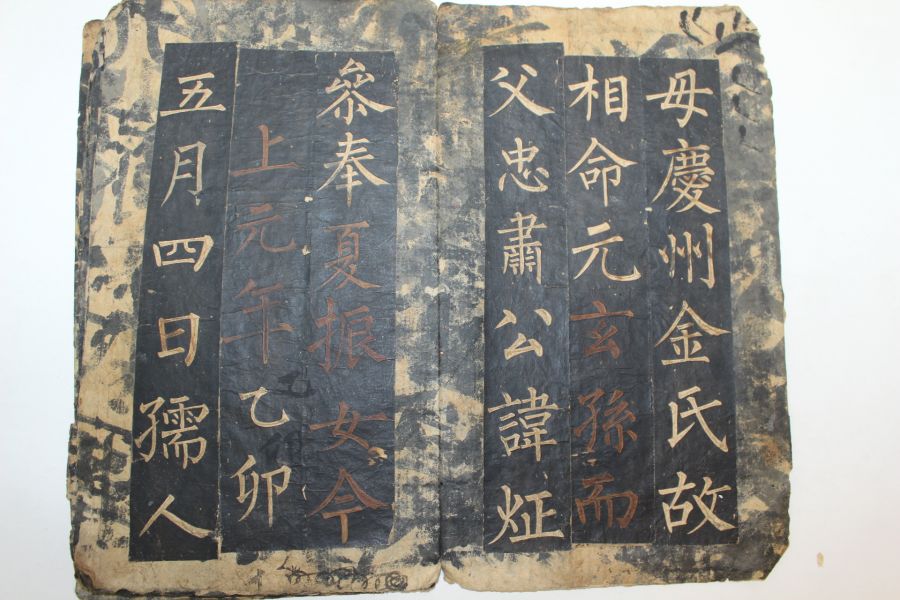 母慶州金氏故
相命元玄孫而
父忠肅公諱炡
叅奉夏振女今
上元年乙卯
五月四日孺人